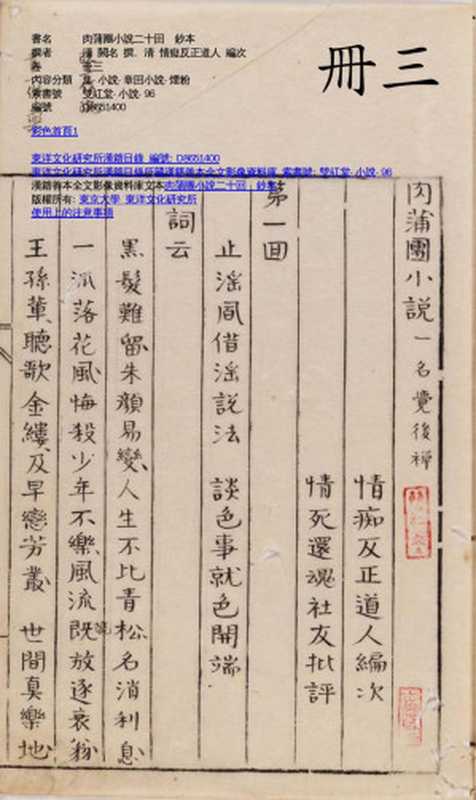 書名 肉蒲團小說二十回 鈔本
撰者 清 闕名 撰、清 情癡反正道人 編次
卷 三
內容分類 集·小說·章回小說·煙粉
索書號 雙紅堂·小說·96
編號 D8651400
彩色首頁1
東洋文化研究所漢籍目錄 編號: D8651400
東洋文化研究所漢籍目錄所藏漢籍善本全文影像資料庫 索書號: 雙紅堂·小說·96
漢籍善本全文影像資料庫文本 肉蒲團小說二十回 , 鈔本
版權所有: 東京大學 東洋文化研究所
使用上的注意事項
三冊
肉蒲團小說 一名覺後禪
情痴反正道人編次
情死還魂社友批評
第一回
止淫風借淫說法 談色事就色開端
詞云
黑髮難留朱顏易變人生不比青松名消利息
一派落花風悔殺少年不樂風流院放逐衰翁
王孫輩聽歌金縷及早戀芳叢 世間真樂地